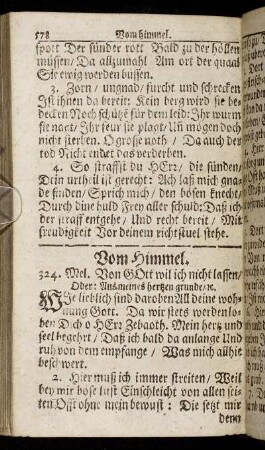 578 Vom himmel.
spott Der sünder rott Bald zu der höllen
müssen/ Da allzumahl Am ort der quaal
Sie ewig werden büssen.
3. Zorn/ ungnad/ furcht und schrecken
Ist ihnen da bereit: Kein berg wird sie be-
decken Noch schütz für dem leid: Ihr wurm
sie nagt/ Ihr feur sie plagt/ Uñ mögen doch
nicht sterben. O grosse noth/ Da auch der
tod Nicht endet das verderben.
4. So straffst du HErr/ die sünden/
Dein urtheil ist gerecht: Ach laß mich gna-
de finden/ Sprich mich/ den bösen knecht/
Durch dine huld Frey aller schuld: Daß ich
der straff entgehe/ Und recht bereit/ Mit
freudigkeit Vor deinem richtstuel stehe.
Vom Himmel.
324. Mel. Von GOtt wil ich nicht lassen/
Oder: Aus meines hertzen grunde/ ꝛc.
WIe lieblich sind daroben All deine woh-
nung Gott. Da wir stets werden lo-
ben Dich o HErr Zebaoth. Mein hertz und
seel begehrt/ Daß ich bald da anlange Und
ruh von dem empfange/ Was mich allhie
beschwert.
2. Hier muß ich immer streiten/ Weil
bey mir böse lust Einschleicht von allen sei-
ten Offt ohne mein bewust: Die setzt mir
denn